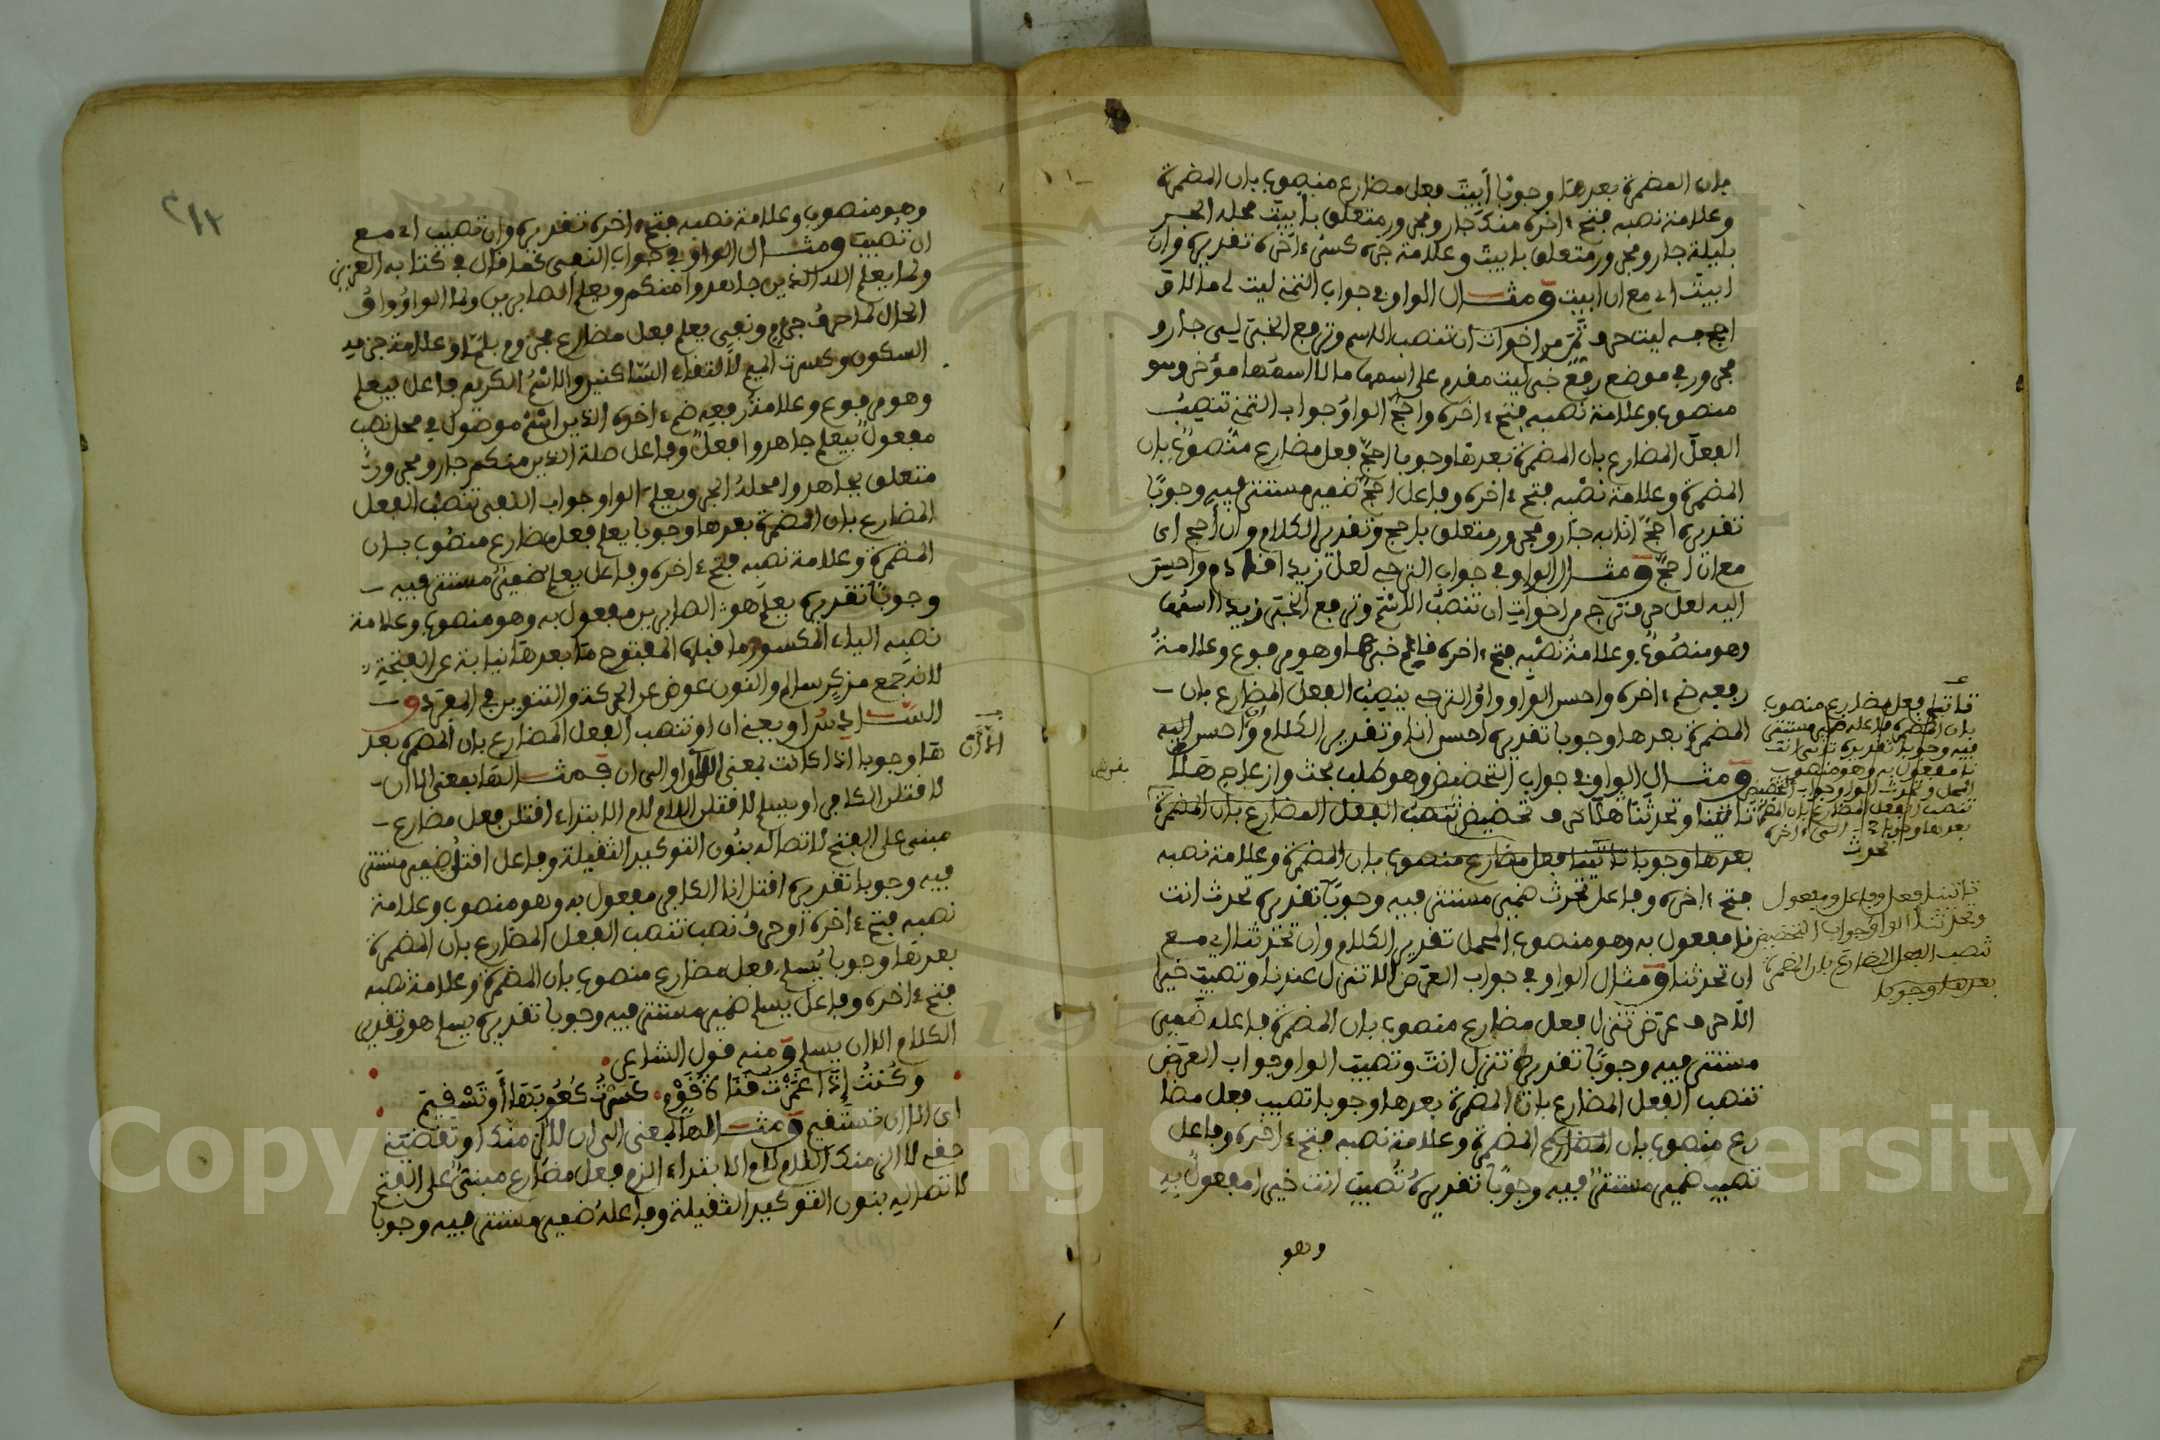 بان المضمرة بعدها وجوبا أبيت فعل مضارع منصوب بان المضمرة
وعلامة نصبه فتحة اخره منك جار ومجرور متعلق بابيت محله الجر
بليلة جار ومجرور متعلق بابيت وعلامة جره كسرة اخره تقديره وان
ابيت اي مع ان ابيت ومثال الواو في جواب التمني ليت لي مالا
احج منه ليت حرف تمن من اخوات ان تنصب الاسم وترفع الخبر لي جار و
مجرور في موضع رفع خبر ليت مقدم على اسمها مالا اسمها مؤخر وهو
منصوب وعلامة نصبه فتحة اخره واحج الواو جواب التمني تنصب
الفعل المضارع بان المضمرة بعدها وجوبا احج فعل مضارع منصوب بان
المضمرة وعلامة نصبه فتحة اخره وفاعل احج ضمير مستتر فيه وجوبا
تقديره احج انا به جار ومجرور متعلق باحج وتقدير الكلام وان أحج اي
مع ان احج ومثال الواو في جواب الترجي لعل زيدا قادم واحسن
اليه لعل حرف ترج من اخوات ان تنصب الاسم وترفع الخبر زيدا اسمها
وهو منصوب وعلامة نصبه فتحة اخره قادم خبرها وهو مرفوع وعلامة
رفعه ضمة اخره واحسن الواو واو الترجي ينصب الفعل المضارع بان
المضمرة بعدها وجوبا تقديره احسن انا وتقدير الكلام وأحسن اليه
ومثال الواو في جواب التحضيض وهو طلب بحث وازعاج هلا
تاتينا وتحدثنا هلا حرف تحضيض تنصب الفعل المضارع بان المضمرة
بعدها وجوبا تاتينا فعل مضارع منصوب بان المضمرة وعلامة نصبه
فتحة اخره وفاعل تحدث ضمير مستتر فيه وجوبا تقديره تحدث انت
نا مفعول به وهو منصوب المحل تقدير الكلام وان تحدثنا اي مع
ان تحدثنا ومثال الواو في جواب العرض الا تنزل عندنا وتصيب خيرا
الا حرف عرض تنزل فعل مضارع منصوب بان المضمرة فاعله ضمير
مستتر فيه وجوبا تقديره تنزل انت وتصيب الواو جواب العرض
تنصب الفعل المضارع بان المضمرة بعدها وجوبا تصيب فعل مضا
رع منصوب بان المضارع المضمرة وعلامة نصبه فتحة اخره وفاعل
تصيب ضمير مستتر فيه وجوبا تقديره تصيب انت خيرا مفعول به
وهو
تاتي فعل مضارع منصوب
بان المضمرة فاعله ضمير مستتر
فيه وجوبا تقديره تاتي انت
نا مفعول به وهو منصوب
المحل وتحدث الواو جواب التحضيض
تنصب الفعل المضارع بان المضمرة
بعدها وجوبا
تحدث
تاتينا فعل وفاعل ومفعول
وتحدثنا الواو جواب التحضيض
تنصب الفعل المضارع بان المضمرة
بعدها وجوبا
٢١٣
وهو منصوب وعلامة نصبه فتحة اخره تقديره وان تصيب اي مع
ان تصيب ومثال الواو في جواب النفي كما قال في كتابه العزيز
ولما يعلم الله الذين جاهدوا منكم ويعلم الصابرين ولما الواو واو
الحال لما حرف جزم ونفي يعلم فعل مضارع مجزوم بلما وعلامة جزمه
السكون وكسرت الميم لالتقاء الساكنين والاسم الكريم فاعل بيعلم
وهو مرفوع وعلامة رفعه ضمة اخره الذين اسم موصول في محل نصب
مفعول بيعلم جاهدوا فعل وفاعل صلة الذين منكم جار ومجرور
متعلق بجاهدوا محله الجر ويعلم الواو جواب النفي تنصب الفعل
المضارع بان المضمرة بعدها وجوبا يعلم فعل مضارع منصوب بان
المضمرة وعلامة نصبه فتحة اخره وفاعل يعلم ضمير مستتر فيه
وجوبا تقديره يعلم هو الصابرين مفعول به وهو منصوب وعلامة
نصبه الياء المكسور ما قبلها المفتوح ما بعدها نيابة عن الفتحة
لانه جمع مذكر سالم والنون عوض عن الحركة والتنوين في المفرد و
السادس او يعني ان او تنصب الفعل المضارع بان المضمرة بعد
ها وجوبا اذا كانت بمعنى الا او الى ان فمثالها بمعنى الا ان
الا أن
لاقتلن الكافر او يسلم لاقتلن اللام لام الابتداء اقتلن فعل مضارع
مبني على الفتح لاتصاله بنون التوكيد الثقيلة وفاعل اقتل ضمير مستتر
فيه وجوبا تقديره اقتل انا الكافر مفعول به وهو منصوب وعلامة
نصبه فتحة اخره او حرف نصب تنصب الفعل المضارع بان المضمرة
بعدها وجوبا يسلم فعل مضارع منصوب بان المضمرة وعلامة نصبه
فتحة اخره وفاعل يسلم ضمير مستتر فيه وجوبا تقديره يسلم هو وتقدير
الكلام الا ان يسلم ومنه قول الشاعر
وكنت إذا غمزت قناة قوم كسرت كعوبها أو تستقيم
اي الا ان تستقيم ومثالها بمعنى الى ان لالزمنك او تقضيني
حقي لالزمنك اللام لام الابتداء الزم فعل مضارع مبني على الفتح
لاتصاله بنون التوكيد الثقيلة وفاعله ضمير مستتر فيه وجوبا
Copyright © King Saud University